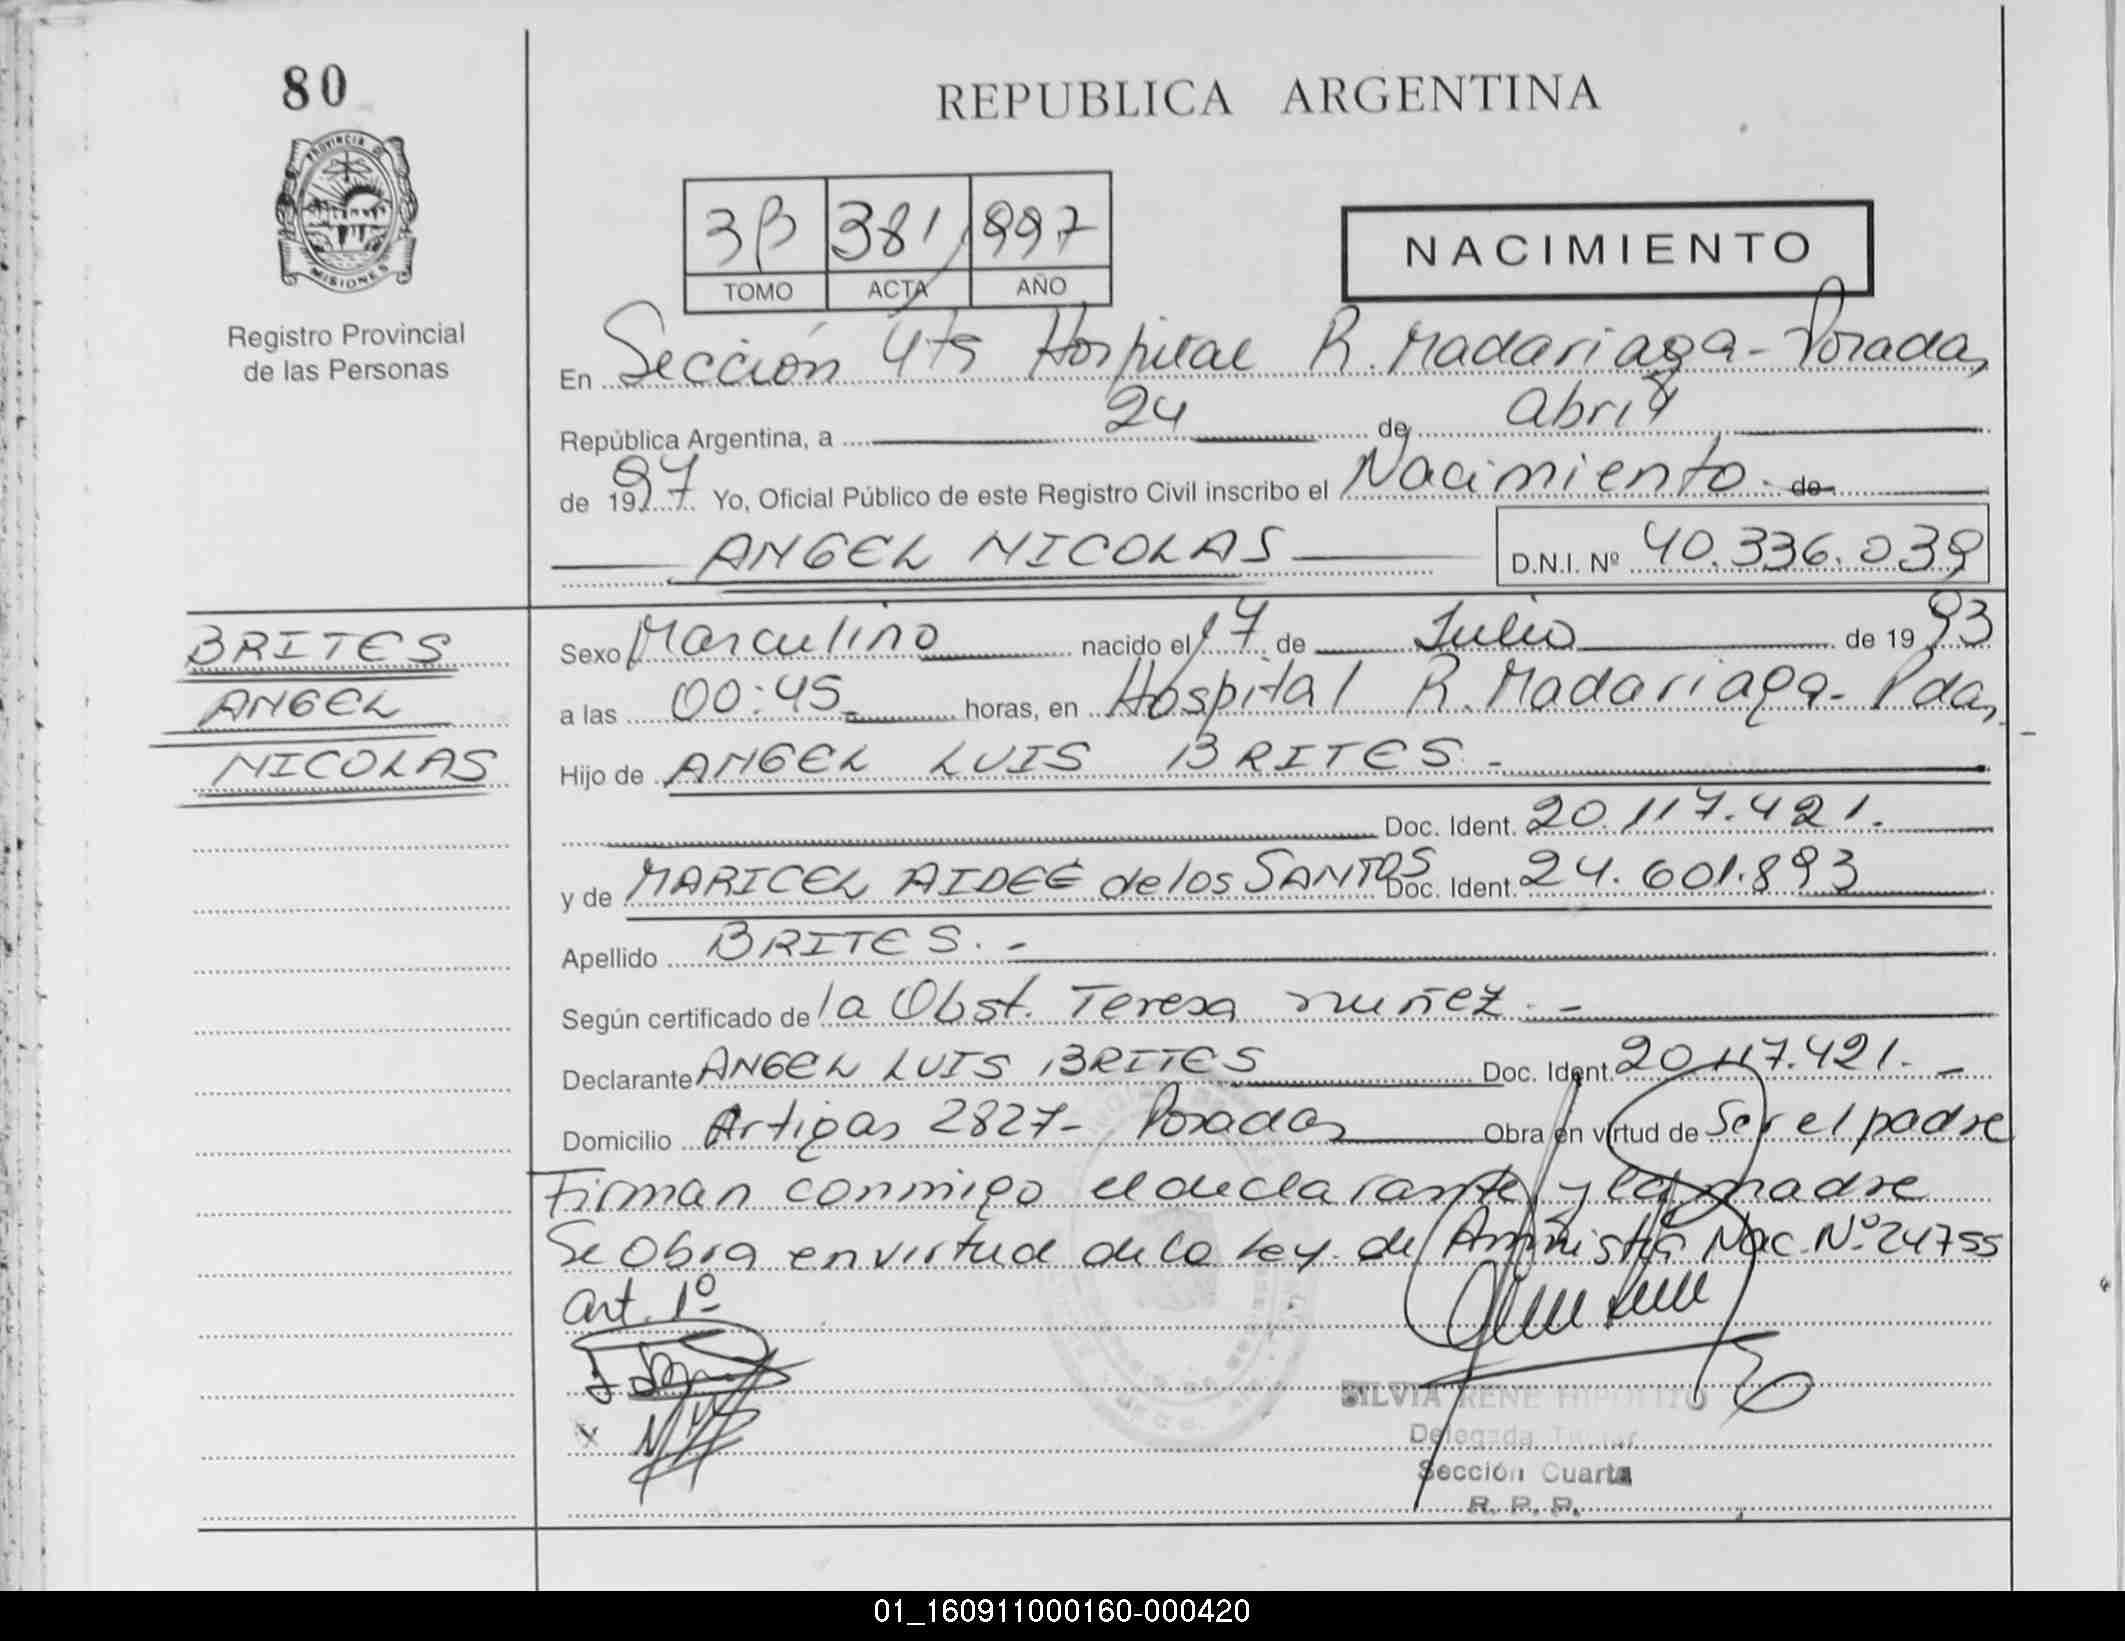 80
REPUBLICA ARGENTINA
PROVINCIA DE
MISIONES
Registro Provincial
de las Personas
3B 381 1997
TOMO ACTA AÑO
NACIMIENTO
En Sección 4ta Hospital R. Madariaga - Posadas
República Argentina, a 24 de abril
de 1997 Yo, Oficial Público de este Registro Civil inscribo el Nacimiento. de
ANGEL NICOLAS D.N.I. Nº 40.336.039
BRITES
ANGEL
NICOLAS
Sexo Masculino nacido el 17 de Julio de 1993
a las 00:45 horas, en Hospital R. Madariaga - Pdas
Hijo de ANGEL LUIS BRITES. -
Doc. Ident. 20.117.421.
y de MARICEL AIDEE de los SANTOS Doc. Ident. 24.601.893
Apellido BRITES. -
Según certificado de la Obst. Teresa nuñez. -
Declarante ANGEL LUIS BRITES Doc. Ident. 20.117.421. -
Domicilio Artigas 2827 - Posadas Obra en virtud de Ser el padre
Firman conmigo el declarante y la madre
Se Obra en virtud de la Ley. de Amnistia Nac. Nº 24755
art. 1º
SILVIA RENE HIPOLITO
Delegada Titular
Sección Cuarta
R. P. P.
01_160911000160-000420